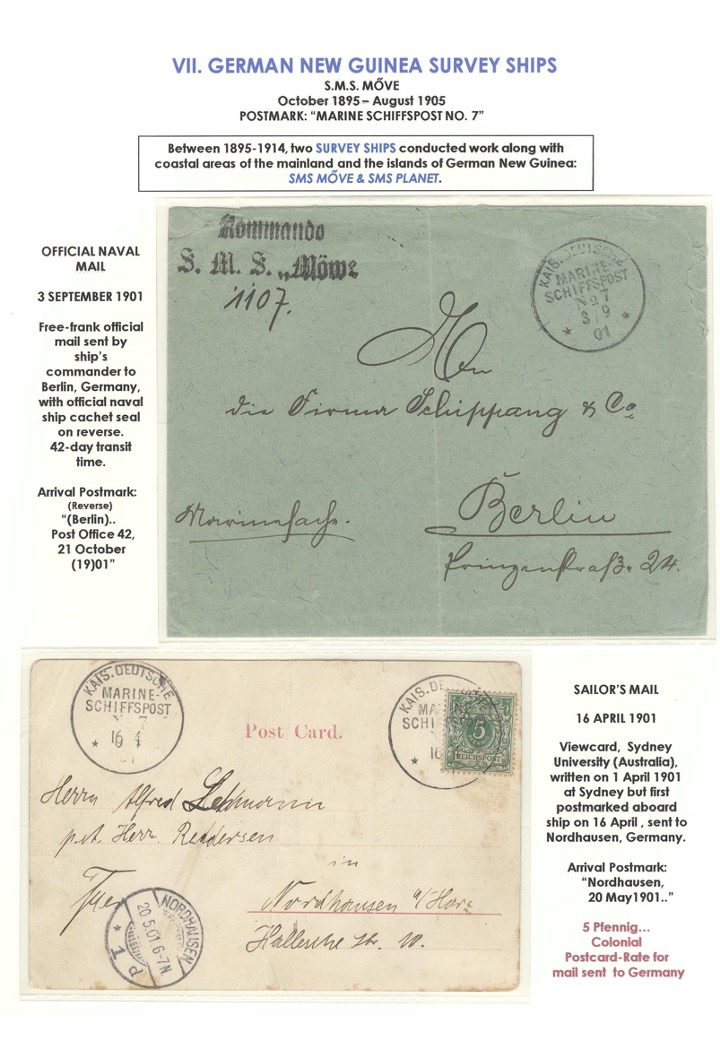 VII. GERMAN NEW GUINEA SURVEY SHIPS
S.M.S. MŐVE
October 1895 – August 1905
POSTMARK: “MARINE SCHIFFSPOST NO. 7”
Between 1895-1914, two SURVEY SHIPS conducted work along with
coastal areas of the mainland and the islands of German New Guinea:
SMS MŐVE & SMS PLANET.
OFFICIAL NAVAL
MAIL
3 SEPTEMBER 1901
Free-frank official
mail sent by
ship’s
commander to
Berlin, Germany,
with official naval
ship cachet seal
on reverse.
42-day transit
time.
Arrival Postmark:
(Reverse)
“(Berlin)..
Post Office 42,
21 October
(19)01”
Kommando
S. M. S. „Möwe
1107.
KAIS. DEUTSCHE
MARINE-
SCHIFFSPOST
No 7
3/9
01
An
die Firma Schippang & Co.
Berlin
Marinesache.
Prinzenstraß. 24.
KAIS. DEUTSCHE
MARINE-
SCHIFFSPOST
7
16 4
01
Post Card.
KAIS. DE
MA
SCHIFFS
16
5
REICHSPOST
Herrn Alfred Lehmann
p. Herr. Reddersen
in
Nordhausen a/Harz
Hallesche Str. 10.
NORDHAUSEN
20.5.01.6-7N
1
SAILOR’S MAIL
16 APRIL 1901
Viewcard, Sydney
University (Australia),
written on 1 April 1901
at Sydney but first
postmarked aboard
ship on 16 April , sent to
Nordhausen, Germany.
Arrival Postmark:
“Nordhausen,
20 May1901..”
5 Pfennig…
Colonial
Postcard-Rate for
mail sent to Germany